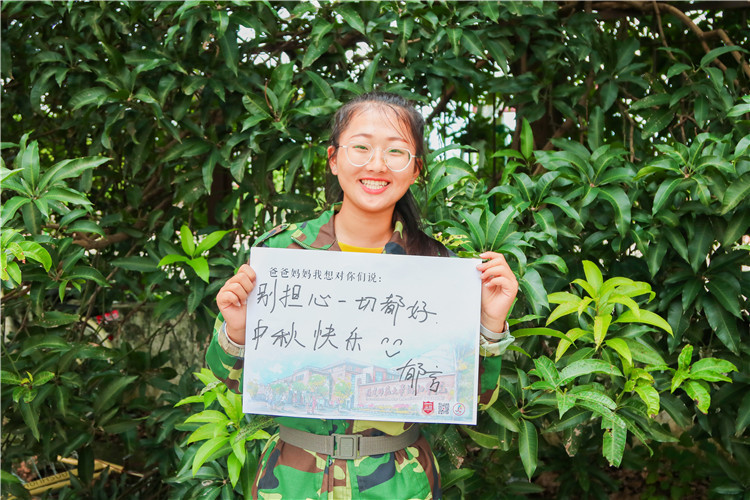 爸爸妈妈我想对你们说：
别担心一切都好.
中秋快乐
郁言